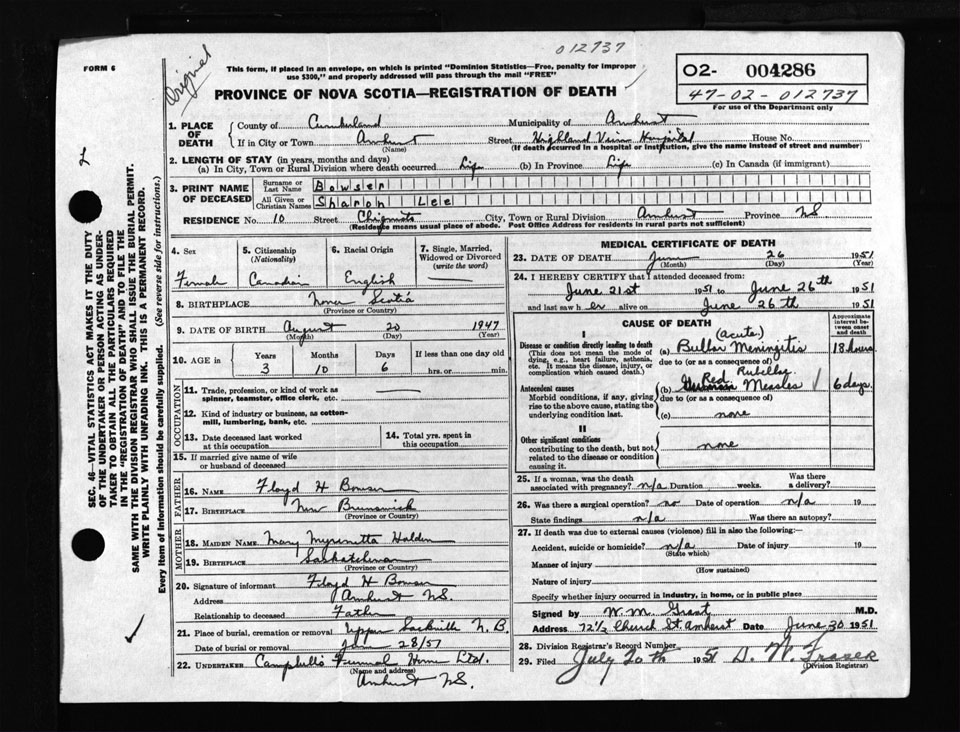 012737
Original
FORM 6
This form, if placed in an envelope, on which is printed "Dominion Statistics—Free, penalty for improper
use $300," and properly addressed will pass through the mail "FREE"
PROVINCE OF NOVA SCOTIA—REGISTRATION OF DEATH
02- 004286
47-02-012737
For use of the Department only
1. PLACE OF DEATH
County of Cumberland Municipality of Amherst
If in City or Town Amherst Street Highland View Hospital House No.
(Name) (If death occurred in a hospital or institution, give the name instead of street and number)
2. LENGTH OF STAY (in years, months and days)
(a) In City, Town or Rural Division where death occurred Life (b) In Province Life (c) In Canada (if immigrant)
3. PRINT NAME OF DECEASED
Surname or Last Name Bowser
All Given or Christian Names Sharon Lee
RESIDENCE No. 10 Street Chignecto City, Town or Rural Division Amherst Province NS
(Residence means usual place of abode. Post Office Address for residents in rural parts not sufficient)
4. Sex
Female
5. Citizenship
(Nationality)
Canadian
6. Racial Origin
English
7. Single, Married,
Widowed or Divorced
(write the word)
8. BIRTHPLACE Nova Scotia
(Province or Country)
9. DATE OF BIRTH August 20 1947
(Month) (Day) (Year)
10. AGE in
Years Months Days If less than one day old
3 10 6 hrs. or min.
OCCUPATION
11. Trade, profession, or kind of work as
spinner, teamster, office clerk, etc.
12. Kind of industry or business, as cotton-
mill, lumbering, bank, etc.
13. Date deceased last worked
at this occupation
14. Total yrs. spent in
this occupation
15. If married give name of wife
or husband of deceased
FATHER
16. NAME Floyd H Bowser
17. BIRTHPLACE New Brunswick
(Province or Country)
MOTHER
18. MAIDEN NAME Mary Holden
19. BIRTHPLACE Saskatchewan
(Province or Country)
20. Signature of informant Floyd H Bowser
Address Amherst NS.
Relationship to deceased Father
21. Place of burial, cremation or removal Upper Sackville N.B.
Date of burial or removal 28/51
22. UNDERTAKER Campbell's Funeral Home Ltd.
(Name and address)
Amherst NS.
MEDICAL CERTIFICATE OF DEATH
23. DATE OF DEATH June 26 1951
(Month) (Day) (Year)
24. I HEREBY CERTIFY that I attended deceased from
June 21st 1951 to June 26th 1951
and last saw her alive on June 26th 1951
CAUSE OF DEATH
Approximate interval between onset and death
I
Disease or condition directly leading to death
(This does not mean the mode of
dying, e.g., heart failure, asthenia,
etc. It means the disease, injury, or
complication which caused death.)
(acute)
(a) Bulbar Meningitis 18 hours
due to (or as a consequence of)
Antecedent causes
Morbid conditions, if any, giving
rise to the above cause, stating the
underlying condition last.
Red Rubella
(b) German Measles 6 days
due to (or as a consequence of)
(c) none
II
Other significant conditions
contributing to the death, but not
related to the disease or condition
causing it.
none
25. If a woman, was the death
associated with pregnancy? n/a Duration weeks. Was there
a delivery?
26. Was there a surgical operation? no Date of operation n/a 19
State findings n/a Was there an autopsy?
27. If death was due to external causes (violence) fill in also the following:
Accident, suicide or homicide? n/a Date of injury 19
(State which)
Manner of injury
(How sustained)
Nature of injury
Specify whether injury occurred in industry, in home, or in public place
Signed by W. M. Grant M.D.
Address 72½ Church St. Amherst Date June 30 1951
28. Division Registrar's Record Number
29. Filed July 20th 1951 D. W. Fraser
(Division Registrar)
SEC. 46—VITAL STATISTICS ACT MAKES IT THE DUTY
OF THE UNDERTAKER OR PERSON ACTING AS UNDER-
TAKER TO OBTAIN ALL THE PARTICULARS REQUIRED
IN THE "REGISTRATION OF DEATH" AND TO FILE THE
SAME WITH THE DIVISION REGISTRAR WHO SHALL ISSUE THE BURIAL PERMIT.
WRITE PLAINLY WITH UNFADING INK. THIS IS A PERMANENT RECORD.
Every item of information should be carefully supplied. (See reverse side for instructions.)